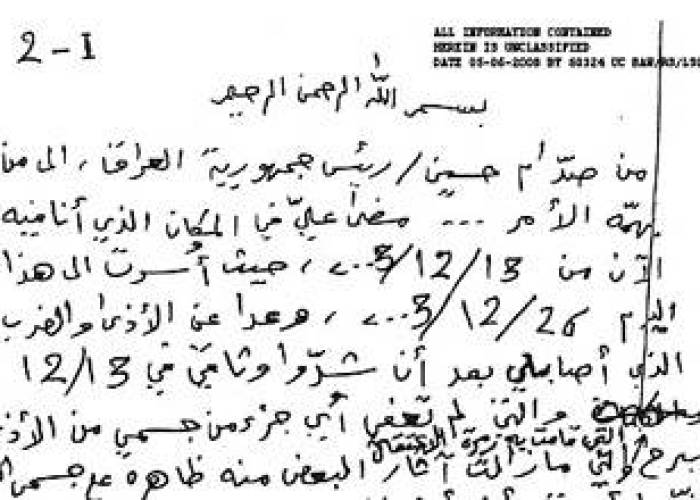 2-I
ALL INFORMATION CONTAINED
HEREIN IS UNCLASSIFIED
DATE 05-06-2008 BY 60324 UC
بسم الله الرحمن الرحيم
من صدّام حسين/رئيس جمهورية العراق، الى من
يهمّه الأمر ... مضى عليّ في المكان الذي أنا فيه
الآن من 3/12/13...، حيث أُسرت الى هذا
اليوم 3/12/26...، وعدا عن الأذى والضرب
الذي أصابني بعد أن شدّوا وثاقي في 12/13
والتي لم تعفي أي جزء من جسمي من
التي قامت به زمرة الاعتقال
مازالت آثار البعض منه ظاهره على